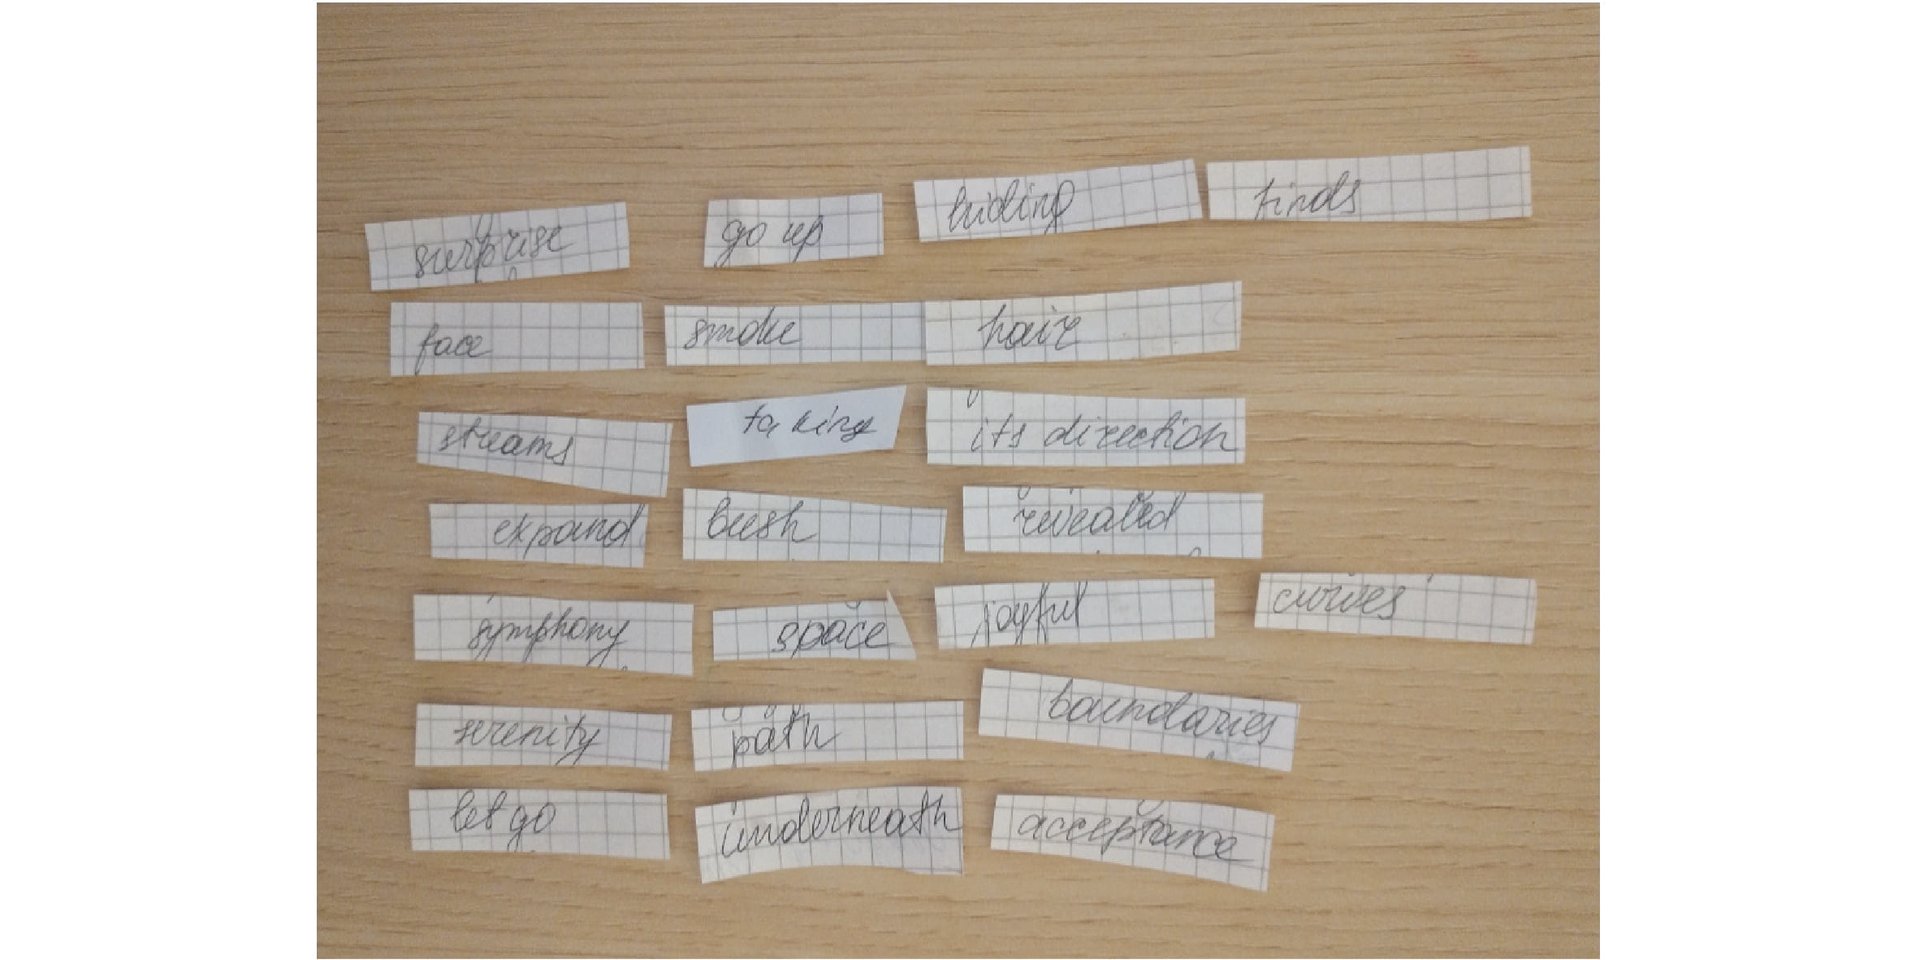 surprise go up hiding finds
face smoke hair
streams taking its direction
expand bush revealed
symphony space joyful curves
serenity path boundaries
let go underneath acceptance